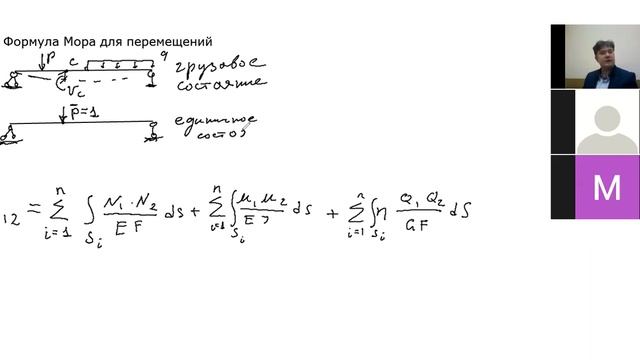 Формула Мора для перемещений
P c q грузовое
Vc состояние
P̄=1 единичное
состоя
12 = ∑ⁿᵢ₌₁ ∫Sᵢ N₁·N₂/EF ds + ∑ⁿᵢ₌₁ ∫Sᵢ M₁M₂/EJ ds + ∑ⁿᵢ₌₁ ∫Sᵢ η Q₁Q₂/GF dS
M